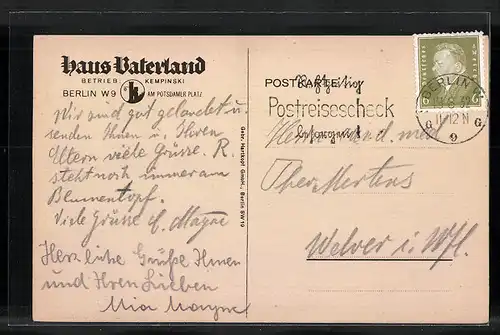 Haus Vaterland
BETRIEB: KEMPINSKI
BERLIN W 9 AM POTSDAMER PLATZ
Wir sind gut gelandet u.
senden Ihnen u. Ihren
Eltern viele Grüsse. R.
steht noch immer am
Blumentopf.
Viele Grüsse
Herzliche Grüße Ihnen
und Ihren Lieben
Mia Mayne
Gebr. Hartkopf GmbH., Berlin SW 19
POSTKARTE
Postreisescheck
BERLIN
11-12 N
G G
9
6 6
Herrn cand. med
Theo Mertens
Welver i. Wfl.